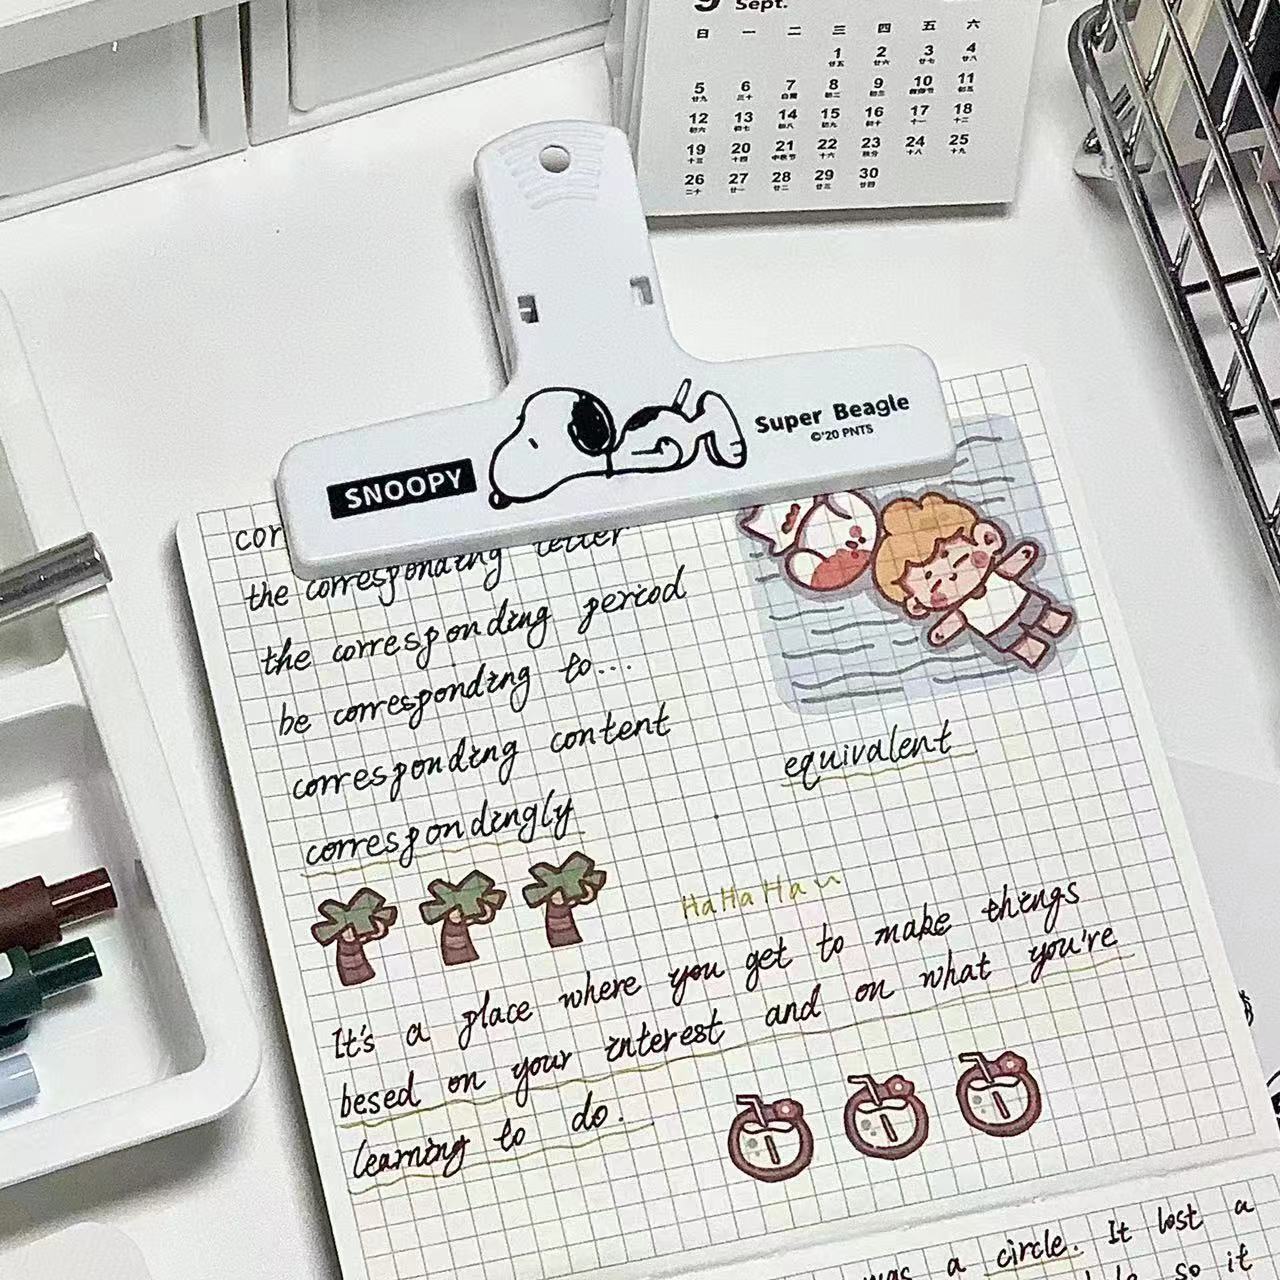 9 Sept.
日 一 二 三 四 五 六
1 2 3 4
廿五 廿六 廿七 廿八
5 6 7 8 9 10 11
廿九 三十 白露 初二 初三 教师节 初五
12 13 14 15 16 17 18
初六 初七 初八 初九 初十 十一 十二
19 20 21 22 23 24 25
十三 十四 中秋节 十六 秋分 十八 十九
26 27 28 29 30
二十 廿一 廿二 廿三 廿四
SNOOPY
Super Beagle
©'20 PNTS
cor
the corresponding letter
the corresponding period
be corresponding to...
corresponding content
correspondingly
equivalent
HaHaHa
It's a place where you get to make things
besed on your interest and on what you're
learning to do.
was a circle. It lost a
so it